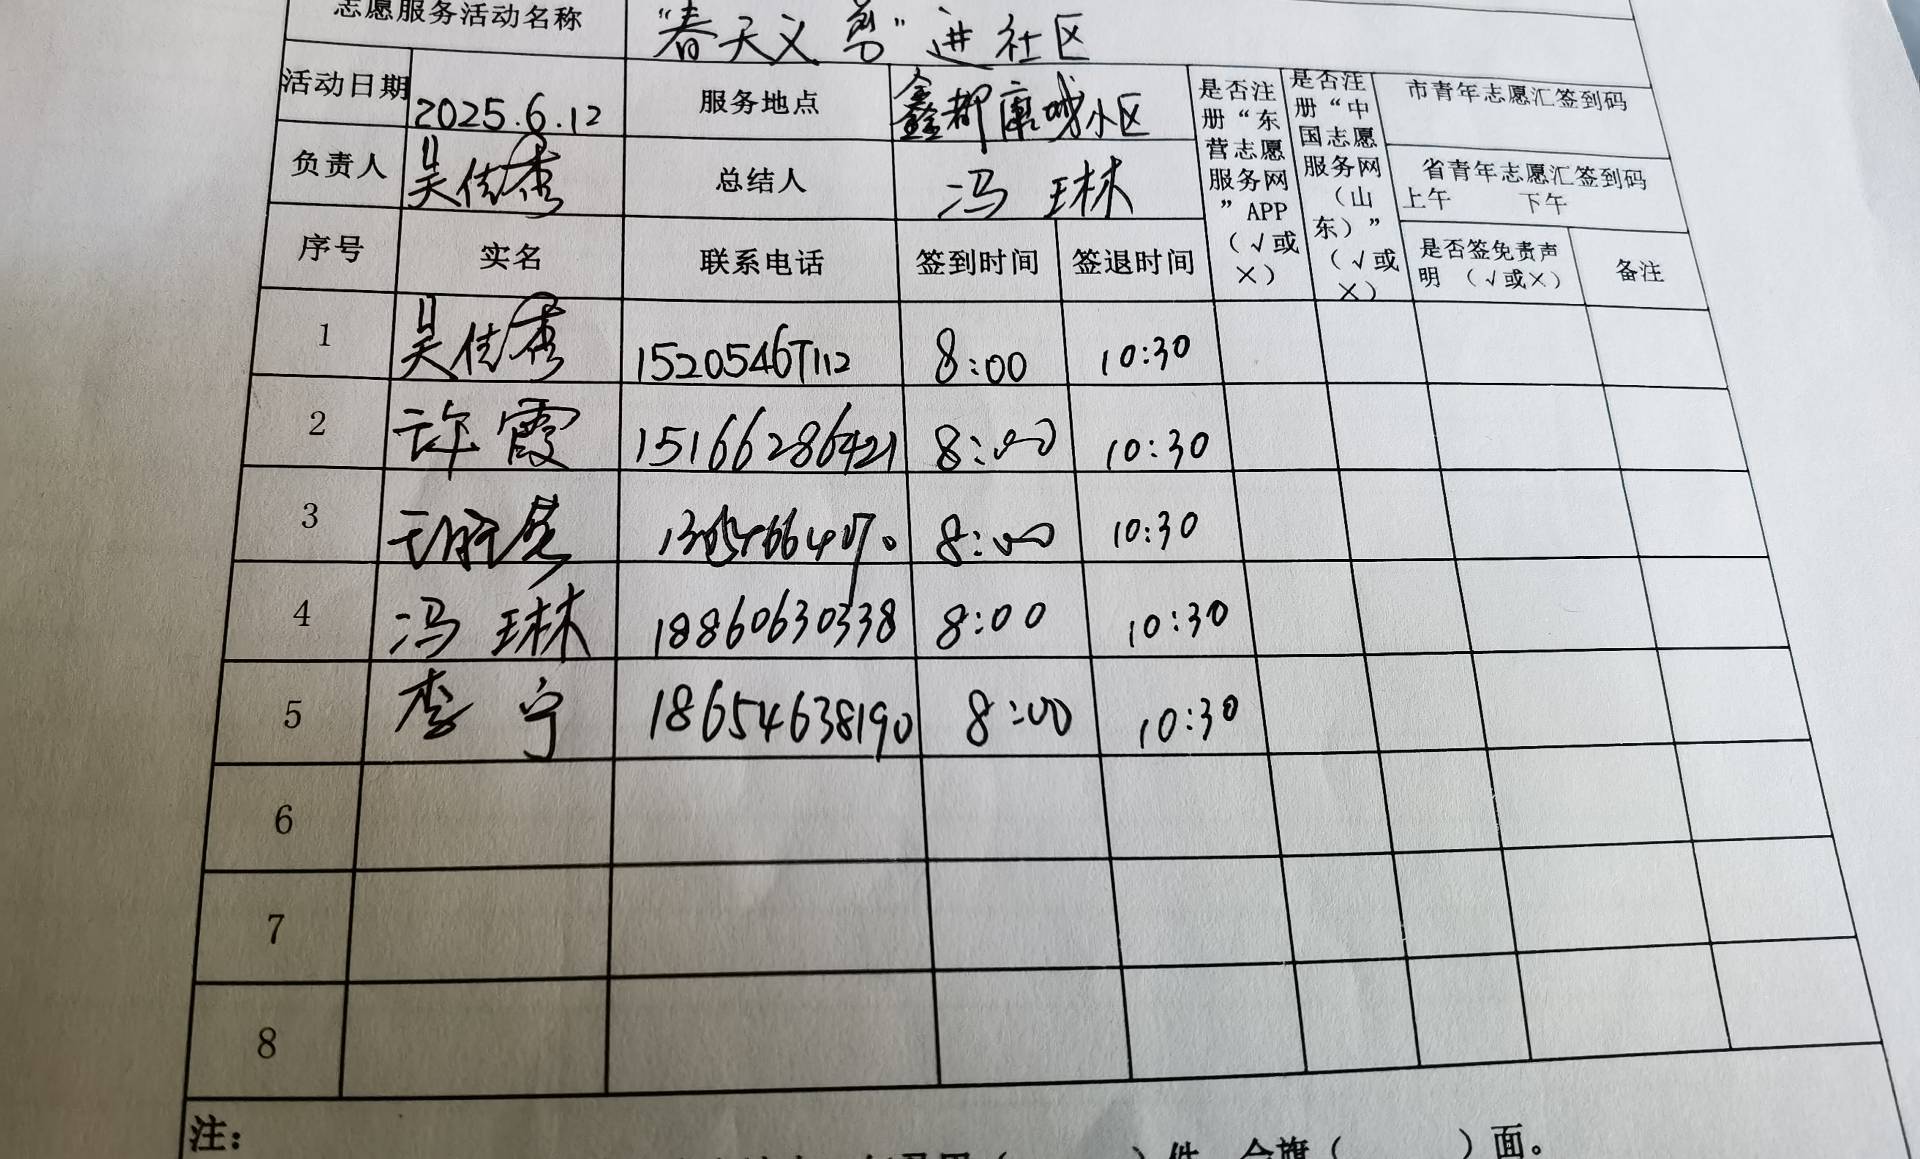 志愿服务活动名称 “春天义剪”进社区
活动日期 2025.6.12 服务地点 鑫都康城小区 是否注册“东营志愿服务网”APP（√或×） 是否注册“中国志愿服务网（山东）”（√或×） 市青年志愿汇签到码
负责人 吴佳秀 总结人 冯琳 省青年志愿汇签到码 上午 下午
序号 实名 联系电话 签到时间 签退时间 是否签免责声明（√或×） 备注
1 吴佳秀 15205467112 8:00 10:30
2 许霞 15166286421 8:00 10:30
3 8:00 10:30
4 冯琳 18860630338 8:00 10:30
5 李宁 18654638190 8:00 10:30
6
7
8
注：
（ ）件 （ ）面。